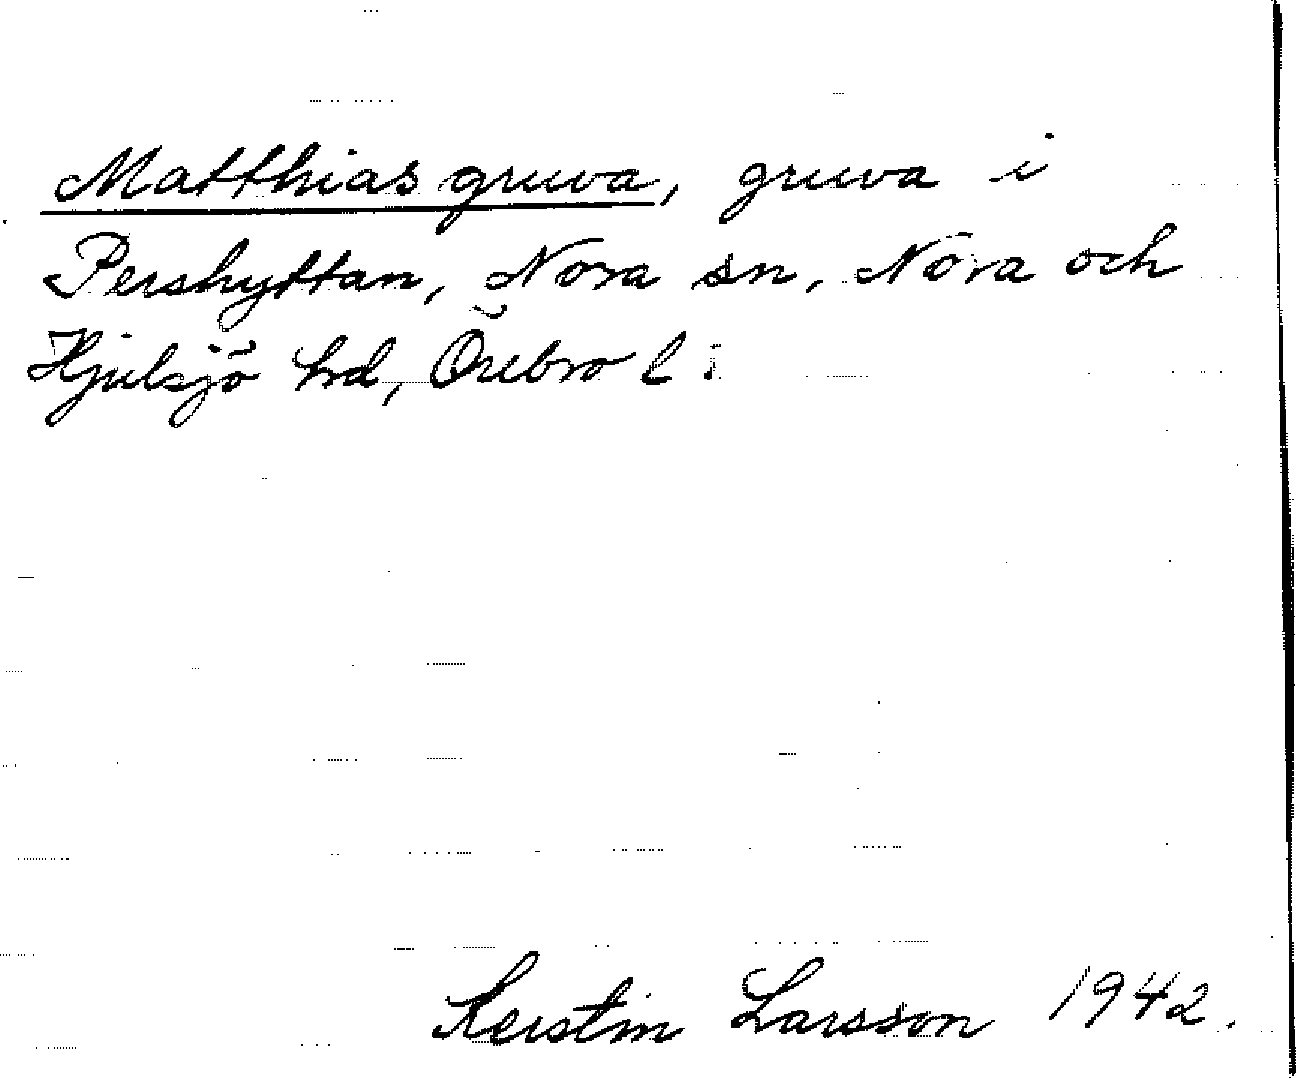 Matthiasgruva, gruva i
Pershyttan, Nora sn, Nora och
Hjulsjö hrd, Örebro l:
Kerstin Larsson 1942.